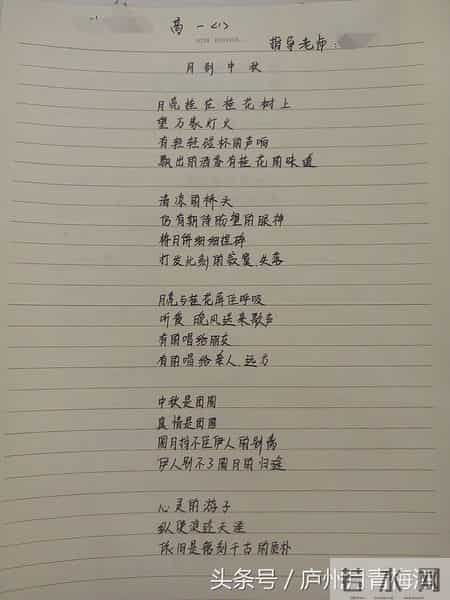 高一(1)
指导老师:
月到中秋
月亮挂在桂花树上
望万家灯火
有轻轻碰杯的声响
飘出的酒香有桂花的味道
清凉的桥头
仍有期待盼望的眼神
将月饼细细捏碎
打发此刻的寂寞、失落
月亮与桂花屏住呼吸
听夜晚风送来歌声
有的唱给朋友
有的唱给亲人、远方
中秋是团圆
真情是团圆
圆月挡不住伊人的别离
伊人别不了圆月的归途
心灵的游子
纵使浪迹天涯
依旧是镌刻千古的质朴
头条号/庐州月青海湖
若水网